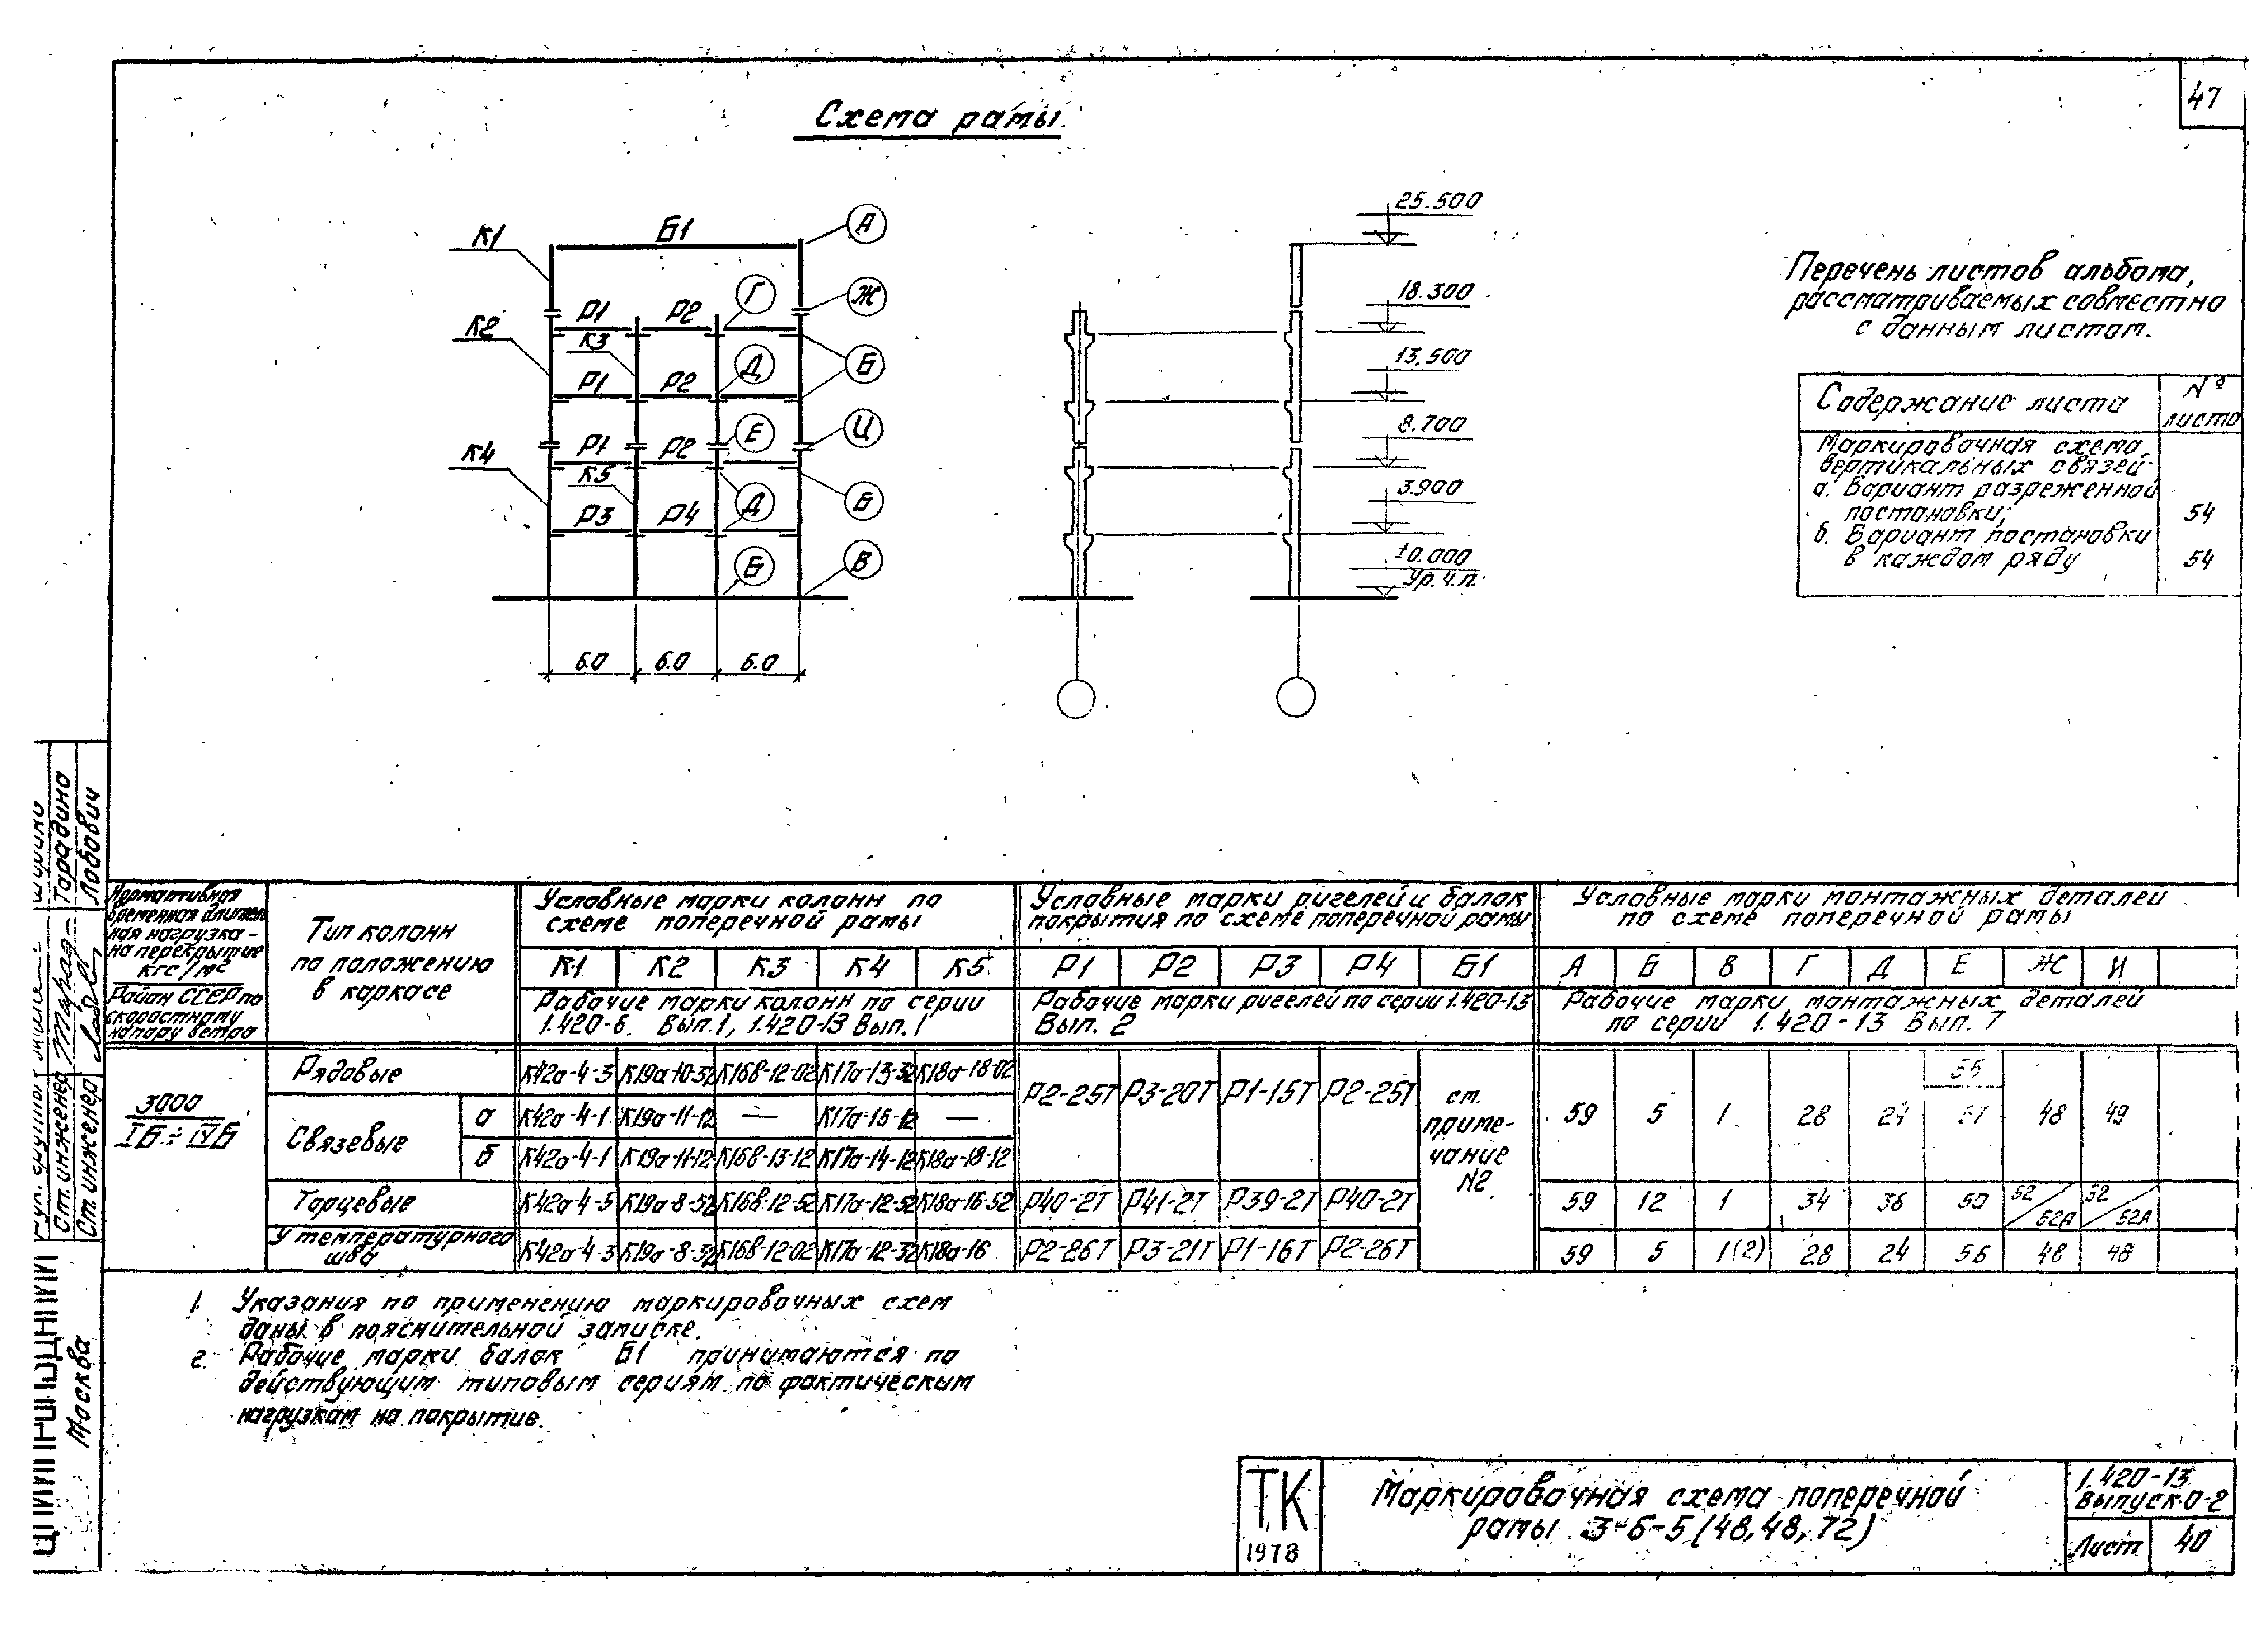 47
Схема рамы
К1
Б1
А
Г
Ж
К2
Р1
Р2
К3
Р1
Р2
Д
Б
К4
Р1
Р2
Е
И
К5
Р3
Р4
Д
Б
Б
В
6.0 6.0 6.0
25.500
18.300
13.500
8.700
3.900
±0.000
Ур.ч.п.
Перечень листов альбома,
рассматриваемых совместно
с данным листом.
Содержание листа
№
листа
Маркировочная схема
вертикальных связей
а. Вариант разреженной
постановки; 54
б. Вариант постановки
в каждом ряду 54
Нормативная
временная длитель
ная нагрузка
на перекрытие
кгс/м²
Район СССР по
скоростному
напору ветра
Тип колонн
по положению
в каркасе
Условные марки колонн по
схеме поперечной рамы
К1 К2 К3 К4 К5
Рабочие марки колонн по серии
1.420-6. Вып.1, 1.420-13 Вып.1
Условные марки ригелей и балок
покрытия по схеме поперечной рамы
Р1 Р2 Р3 Р4 Б1
Рабочие марки ригелей по серии 1.420-13
Вып. 2
Условные марки монтажных деталей
по схеме поперечной рамы
А Б В Г Д Е Ж И
Рабочие марки монтажных деталей
по серии 1.420-13 Вып. 7
3000
IБ ÷ IVБ
Рядовые К42а-4-3 К19а-10-32 К16в-12-02 К17а-13-32 К18а-18-02
Связевые
а К42а-4-1 К19а-11-12 — К17а-15-12 —
б К42а-4-1 К19а-11-12 К16в-13-12 К17а-14-12 К18а-18-12
Р2-25Т Р3-20Т Р1-15Т Р2-25Т
см.
приме-
чание
№2
59 5 1 28 24 56 57 48 49
Торцевые К42а-4-5 К19а-8-52 К16в-12-52 К17а-12-52 К18а-16-52 Р40-2Т Р41-2Т Р39-2Т Р40-2Т 59 12 1 34 36 50 52/52А 52/52А
У температурного
шва К42а-4-3 К19а-8-32 К16в-12-02 К17а-12-32 К18а-16 Р2-26Т Р3-21Т Р1-16Т Р2-26Т 59 5 1(2) 28 24 56 48 48
1. Указания по применению маркировочных схем
даны в пояснительной записке.
2. Рабочие марки балок Б1 принимаются по
действующим типовым сериям по фактическим
нагрузкам на покрытие.
ТК
1978
Маркировочная схема поперечной
рамы 3-6-5 (48,48,72)
1.420-13
Выпуск 0-2
Лист 40
Москва
Ст. инженер Тарадина
Ст. инженер Лобович